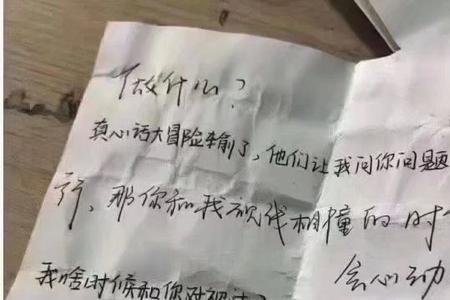 做什么?
真心话大冒险输了,他们让我问你问题
行、那你和我视线相撞的时
会心动
我啥时候和你对视过?